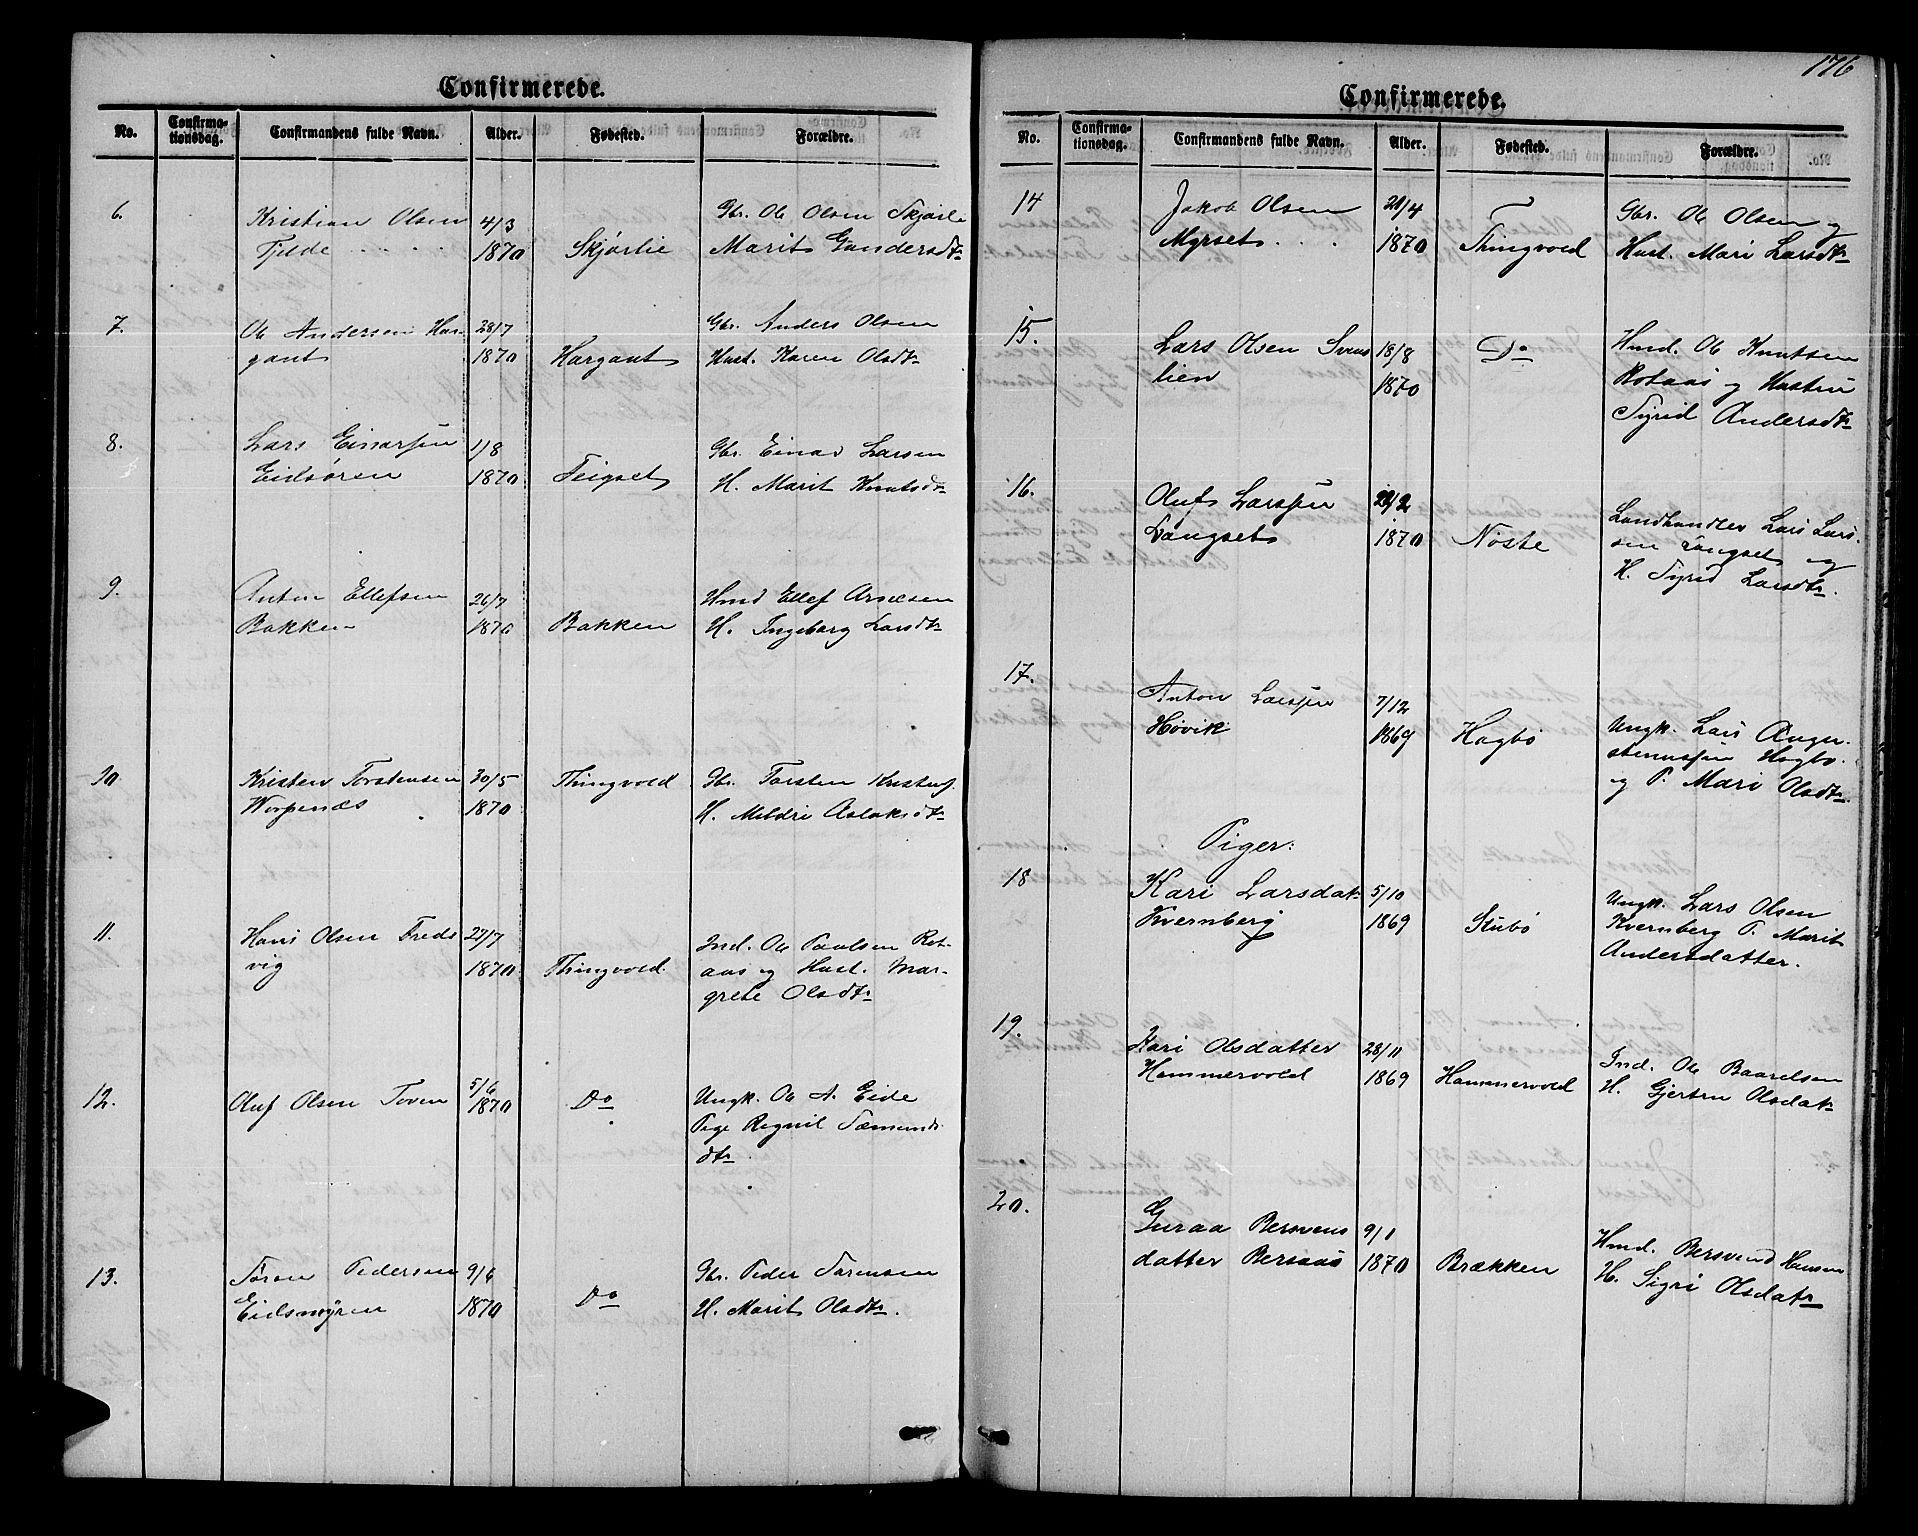 Confirmerede.
No.
Confirma-
tionsdag.
Confirmandens fulde Navn.
Alder.
Fødested.
Forældre.
6.
Kristian Olsen
Fjelde
4/3
1870
Skjørlie
Gbr. Ole Olsen Skjørlie
Marit Gundersdtr
7.
Ole Andersen Har
gaut
28/7
1870
Hargaut
Gbr. Anders Olsen
Hust. Karen Olsdtr
8.
Lars Einarsen
Eidsøren
1/8
1870
Teigset
Gbr. Einar Larsen
H. Marit Knutsdtr
9.
Anton Ellefsen
Bakken
26/7
1870
Bakken
Hmd Ellef Arnesen
H. Ingeborg Larsdtr
10
Kristen Torstensen
Worpenæs
30/5
1870
Thingvold
Gbr. Torsten Kristens.
H. Meldri Aslaksdtr
11.
Hans Olsen Freds
vig
27/7
1870
Thingvold.
Ind. Ole Paulsen Rot-
aas og Hust. Mar-
grete Olsdtr
12.
Oluf Olsen Toven
5/6
1870
Do
Ungk. Ole A. Eide
Pige Ragnil Sæmunds
dtr
13.
Søren Pedersen
Eidsmyren
9/6
1870
Do
Gbr. Peder Sørensen
H. Marit Olsdtr.
176
Confirmerede.
No.
Confirma-
tionsdag.
Confirmandens fulde Navn.
Alder.
Fødested.
Forældre.
14
Jakob Olsen
Myrset
21/4
1870
Thingvold
Gbr. Ole Olsen og
Hust. Mari Larsdtr
15.
Lars Olsen Svens
lien
18/8
1870
Do
Hmd. Ole Knutsen
Rotaas og Hustru
Sigrid Andersdtr
16.
Oluf Larssen
Langset
1870
Nøste
Landhandler Lars Lars-
sen Langset og
H. Sigrid Larsdtr.
17.
Anton Larssen
Høvik
7/12
1869
Hagbø
Ungk. Lars Anger-
stenussen Hagbø
og P. Mari Olsdtr.
Piger:
18
Kari Larsdatr
Kvernberg
5/10
1869
Stubø
Ungk. Lars Olsen
Kvernberg P. Marit
Andersdatter.
19.
Kari Olsdatter
Hammervold
28/11
1869
Hammervold
Ind. Ole Baardsen
H. Gjertru Olsdatr
20.
Guraa Bersvens
datter Bersaas
9/1
1870
Brækken
Hmd. Bersvend Hansen
H. Sigri Olsdatr